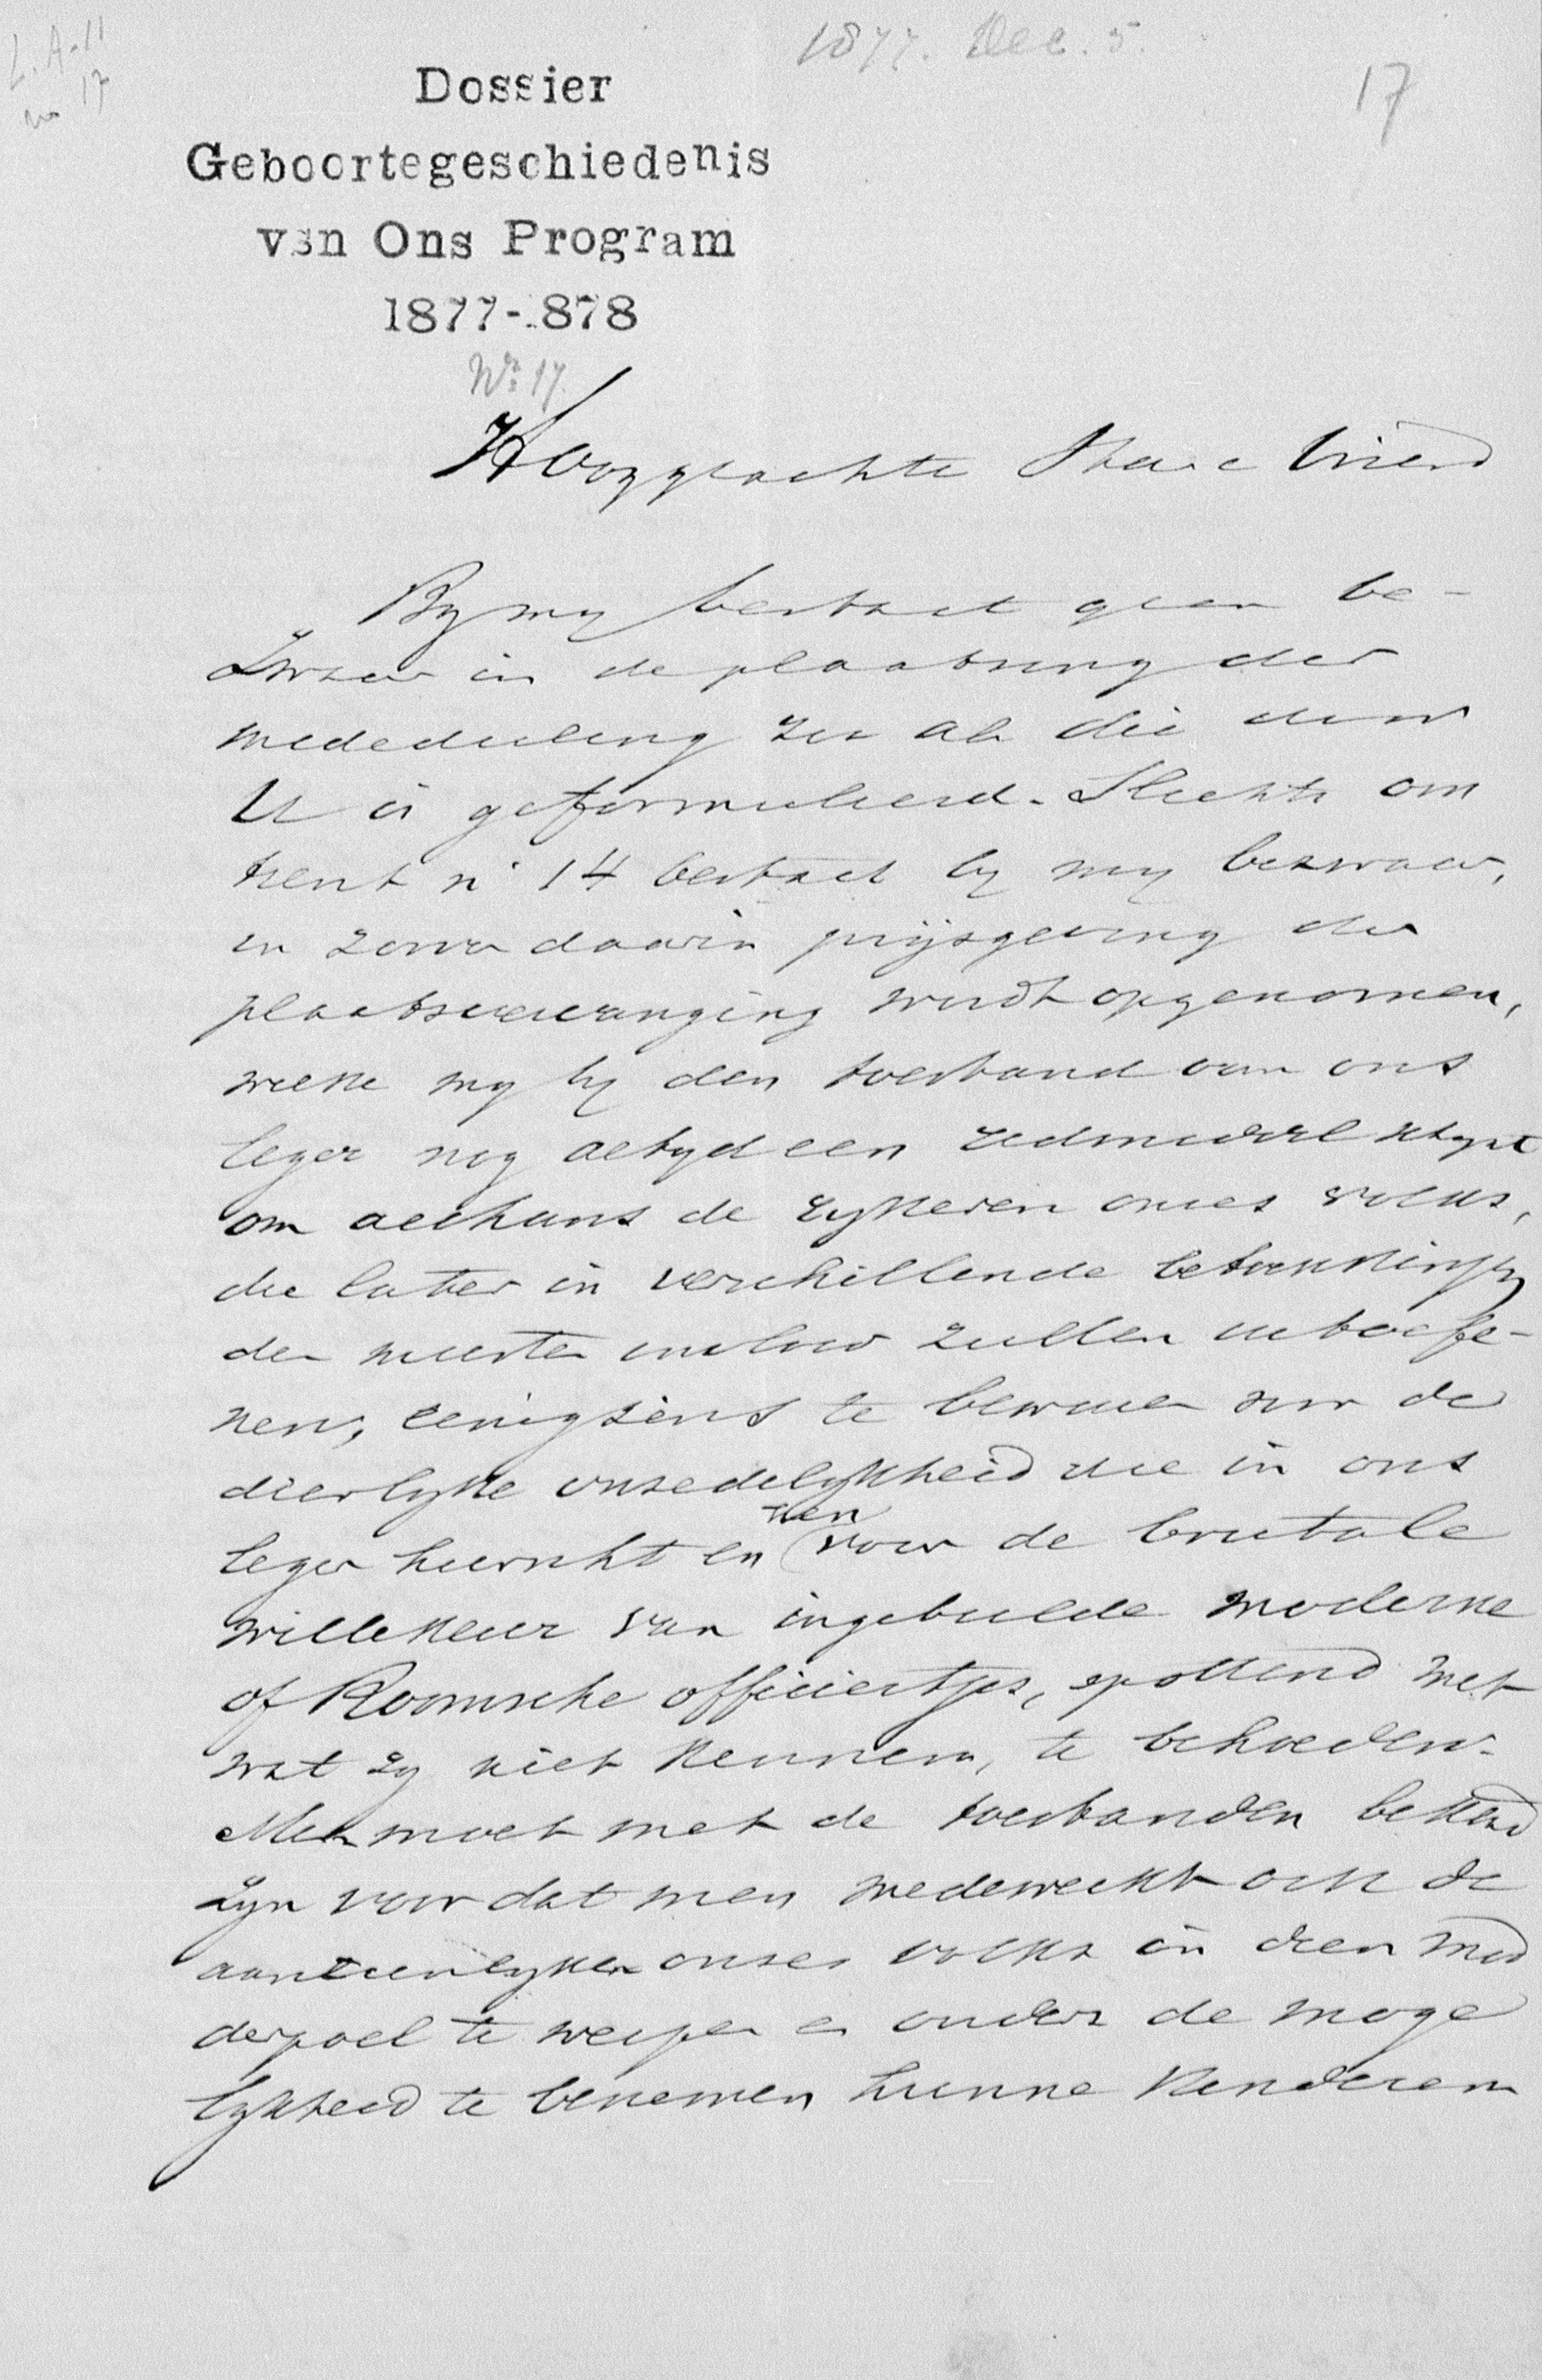 L. A. 11
no 17
1877. Dec. 5.
17
Dossier
Geboortegeschiedenis
van Ons Program
1877-1878
No 17.
Hooggeachte Heer e Vriend
By my bestaat geen be-
zwaar in de plaatsing der
mededeeling zoo als die door
U is geformuleerd. Slechts om
trent n° 14 bestaat by my bezwaar,
in zover daarin prijsgeving der
plaatsvervanging wordt opgenomen,
welke my by den toestand van ons
leger nog altyd een redmiddel schynt
om althans de rykeren onzes volks,
die later in verschillende betrekkingen
den meesten invloed zullen uitoefe-
nen, eenigzins te bewaren voor de
dierlyke onzedelykheid die in ons
leger heerscht en hen voor de brutale
willekeur van ingebeelde moderne
of Roomsche officiertjes, spottend met
wat zy niet kennen, te behoeden.
Men moet met de toestanden bekend
zyn voor dat men medewerkt ook de
aanzienlyken onzes volks in dien mod
derpoel te werpen en ouders de moge
lykheid te benemen hunne kinderen